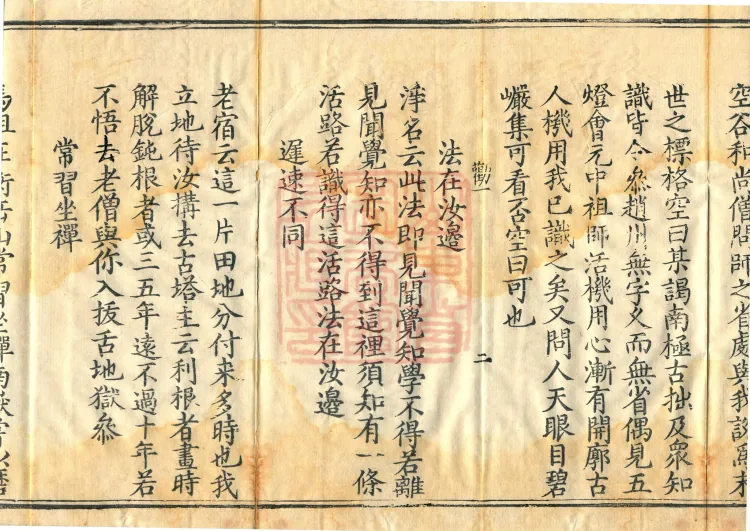 空谷和尚僧問師之省處與我說末
世之標格空曰某謁南極古拙及眾知
識皆令叅趙州無字久而無省偶見五
燈會元中祖師活機用心漸有開廓古
人機用我已識之矣又問人天眼目碧
巖集可看否空曰可也
勸
二
法在汝邊
淨名云此法即見聞覺知學不得若離
見聞覺知亦不得到這裡須知有一條
活路若識得這活路法在汝邊
遲速不同
老宿云這一片田地分付来多時也我
立地待汝搆去古塔主云利根者畫時
解脫鈍根者或三五年遠不過十年若
不悟去老僧與你入拔舌地獄叅
常習坐禪